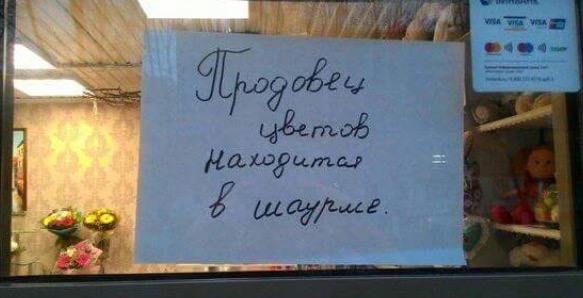 Продовец
цветов
находится
в шаурме.
VISA VISA VISA